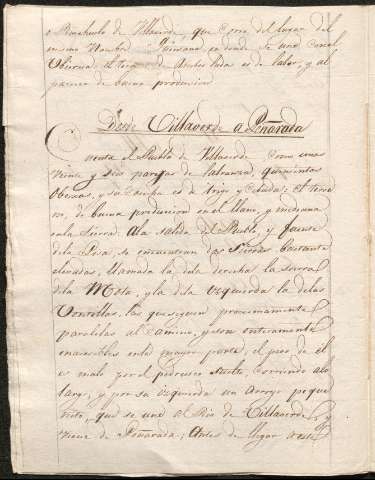 o Riachuelo de Villaverde, que corre del lugar del
mismo Nombre Quintana, en donde se une con el
Oberna; el terreno de Ambos lados es de labor, y al
parecer de buena produccion.
Desde Villaverde a Peñarada
Cuenta el Pueblo de Villaverde como unas
Veinte y seis parejas de labranza, quinientas
Obexas, y su Campo es de trigo y Cebada; el terre
no, de buena produccion en el llano, y mediana
en la sierra. Ala salida del Pueblo, y fuente
dela Pisa, se encuentran dos Sierras bastante
elevadas, llamada la dela derecha la sierra
dela Mota, y la dela izquierda la delas
Ventillas, las que siguen proximamente
paralelas al Camino, y son enteramente
en la mayor parte, el piso de él
es malo por el pedrusco suelto, corriendo alo
largo, y por su izquierda un Arroyo peque
ñito, que se une al Rio de Villaverde y
viene de Peñarada; Antes de llegar a este